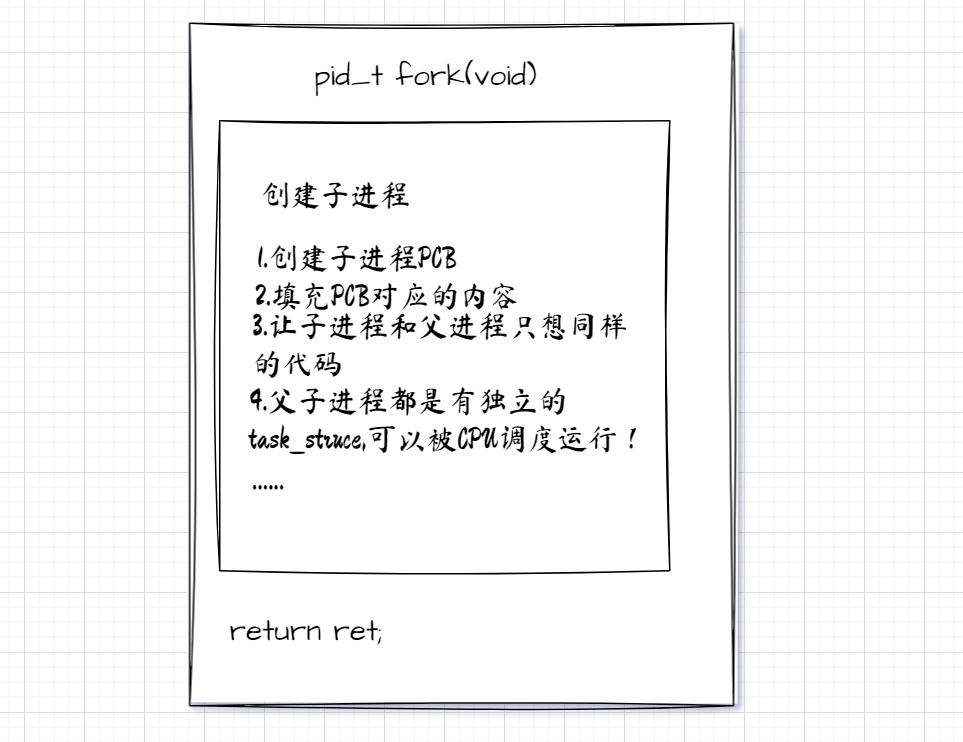 pid_t fork(void)
创建子进程
1.创建子进程PCB
2.填充PCB对应的内容
3.让子进程和父进程只想同样
的代码
4.父子进程都是有独立的
task_struce,可以被CPU调度运行！
......
return ret;